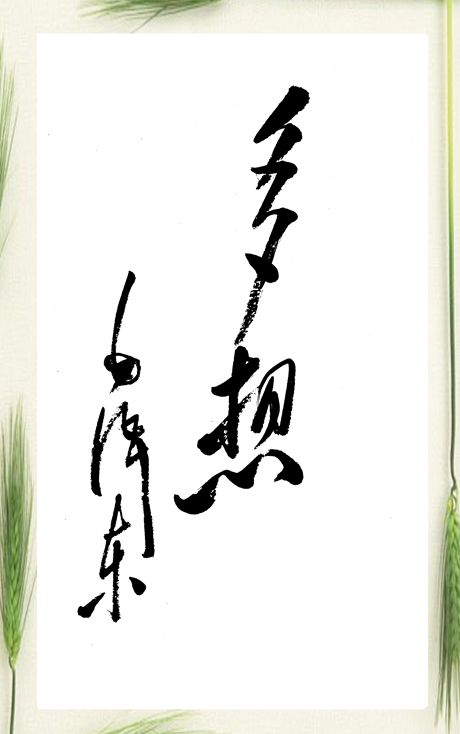 多想
毛泽东